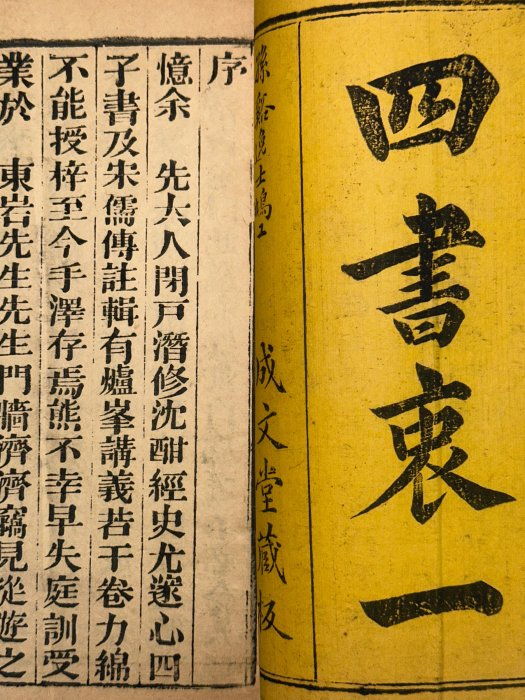 四書衷一
成文堂藏板
序
憶余　先大人閉戸潛修沈酣經史尤邃心四
子書及宋儒傳註輯有爐峯講義若干卷力綿
不能授梓至今手澤存焉熊不幸早失庭訓受
業於　東岩先生先生門牆濟濟竊見從遊之